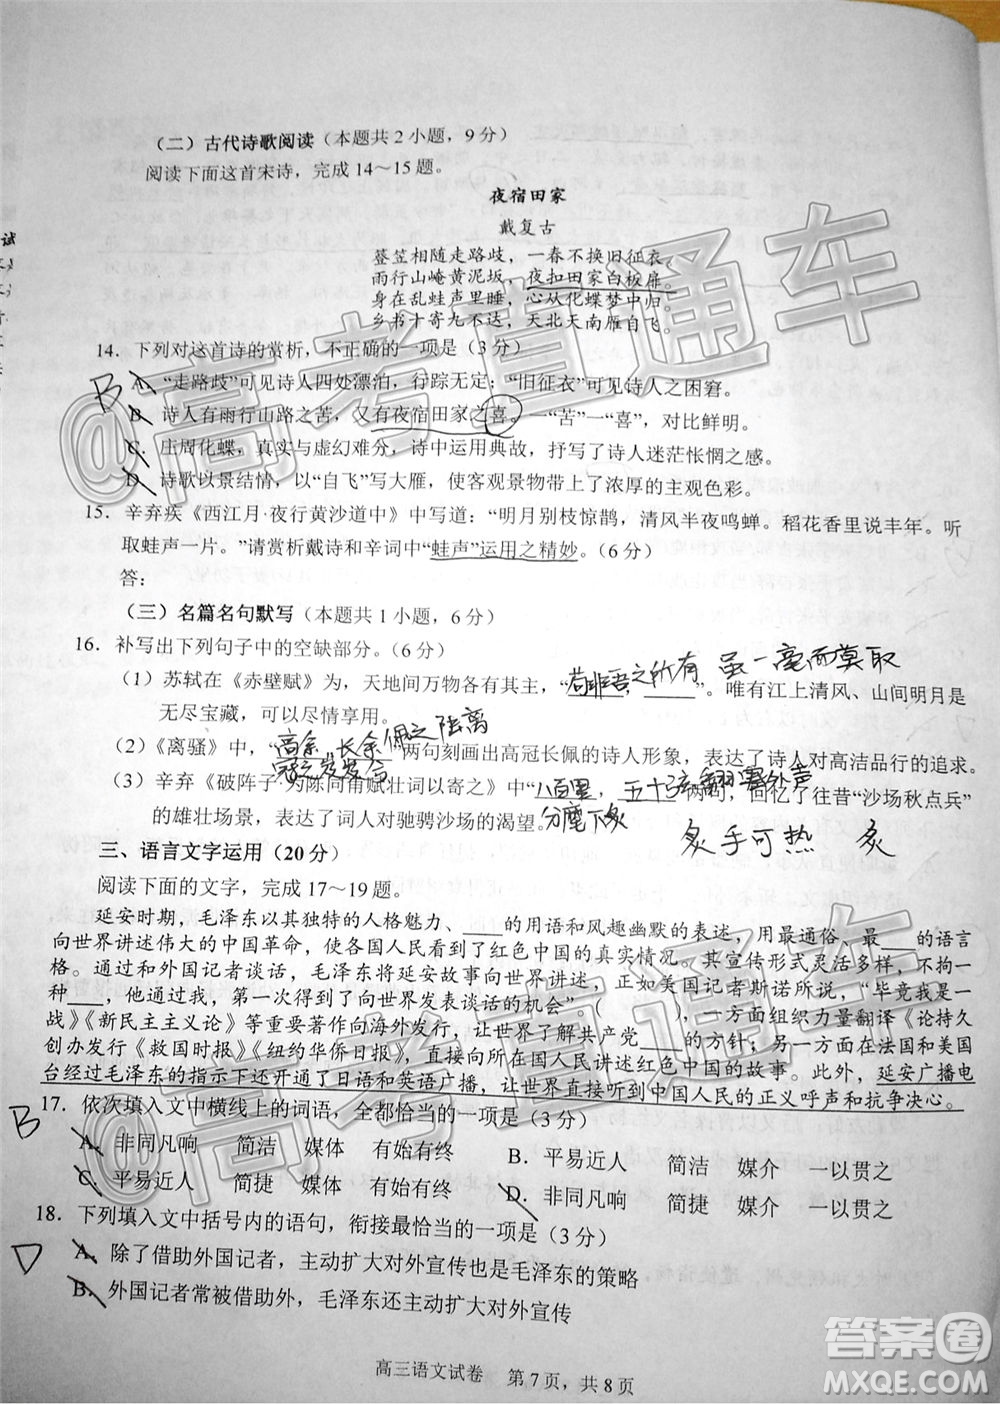 （二）古代诗歌阅读（本题共2小题，9分）
阅读下面这首宋诗，完成14～15题。
夜宿田家
戴复古
簦笠相随走路歧，一春不换旧征衣。
雨行山崦黄泥坂，夜扣田家白板扉。
身在乱蛙声里睡，心从化蝶梦中归。
乡书十寄九不达，天北天南雁自飞。
14．下列对这首诗的赏析，不正确的一项是（3分）
B
A．“走路歧”可见诗人四处漂泊，行踪无定；“旧征衣”可见诗人之困窘。
B．诗人有雨行山路之苦，又有夜宿田家之喜。一“苦”一“喜”，对比鲜明。
C．庄周化蝶，真实与虚幻难分，诗中运用典故，抒写了诗人迷茫怅惘之感。
D．诗歌以景结情，以“自飞”写大雁，使客观景物带上了浓厚的主观色彩。
15．辛弃疾《西江月·夜行黄沙道中》中写道：“明月别枝惊鹊，清风半夜鸣蝉。稻花香里说丰年。听
取蛙声一片。”请赏析戴诗和辛词中“蛙声”运用之精妙。（6分）
答：
（三）名篇名句默写（本题共1小题，6分）
16．补写出下列句子中的空缺部分。（6分）
（1）苏轼在《赤壁赋》为，天地间万物各有其主，“苟非吾之所有 虽一毫而莫取”。唯有江上清风、山间明月是
无尽宝藏，可以尽情享用。
（2）《离骚》中，“高余冠之岌岌兮 长余佩之陆离”两句刻画出高冠长佩的诗人形象，表达了诗人对高洁品行的追求。
（3）辛弃《破阵子·为陈同甫赋壮词以寄之》中“八百里分麾下炙，五十弦翻塞外声”两句，回忆了往昔“沙场秋点兵”
的雄壮场景，表达了词人对驰骋沙场的渴望。
炙手可热 炙
三、语言文字运用（20分）
阅读下面的文字，完成17～19题。
延安时期，毛泽东以其独特的人格魅力、___的用语和风趣幽默的表述，用最通俗、最___的语言
向世界讲述伟大的中国革命，使各国人民看到了红色中国的真实面貌。其宣传形式灵活多样，不拘一
格。通过和外国记者谈话，毛泽东将延安故事向世界讲述，正如美国记者斯诺所说，“毕竟我是一
种___，他通过我，第一次得到了向世界发表谈话的机会”（ ），一方面组织力量翻译《论持久
战》《新民主主义论》等重要著作向海外发行，让世界了解共产党___的方针；另一方面在法国和美国
创办发行《救国时报》《纽约华侨日报》，直接向所在国人民讲述红色中国的故事。此外，延安广播电
台经过毛泽东的指示下还开通了日语和英语广播，让世界直接听到中国人民的正义呼声和抗争决心。
17．依次填入文中横线上的词语，全都恰当的一项是（3分）
B
A．非同凡响 简洁 媒体 有始有终
B．平易近人 简洁 媒介 一以贯之
C．平易近人 简捷 媒体 有始有终
D．非同凡响 简捷 媒介 一以贯之
18．下列填入文中括号内的语句，衔接最恰当的一项是（3分）
D
A．除了借助外国记者，主动扩大对外宣传也是毛泽东的策略
B．外国记者常被借助外，毛泽东还主动扩大对外宣传
高三语文试卷 第7页，共8页
@高考直通车
@高考直通车
答案圈
MXQE.COM